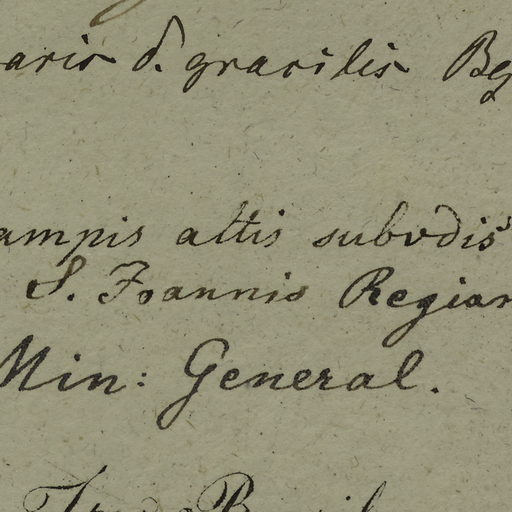 aris δ. gracilis Bg
ampis altis subvdis
S. Joannis Regian
Min: General.